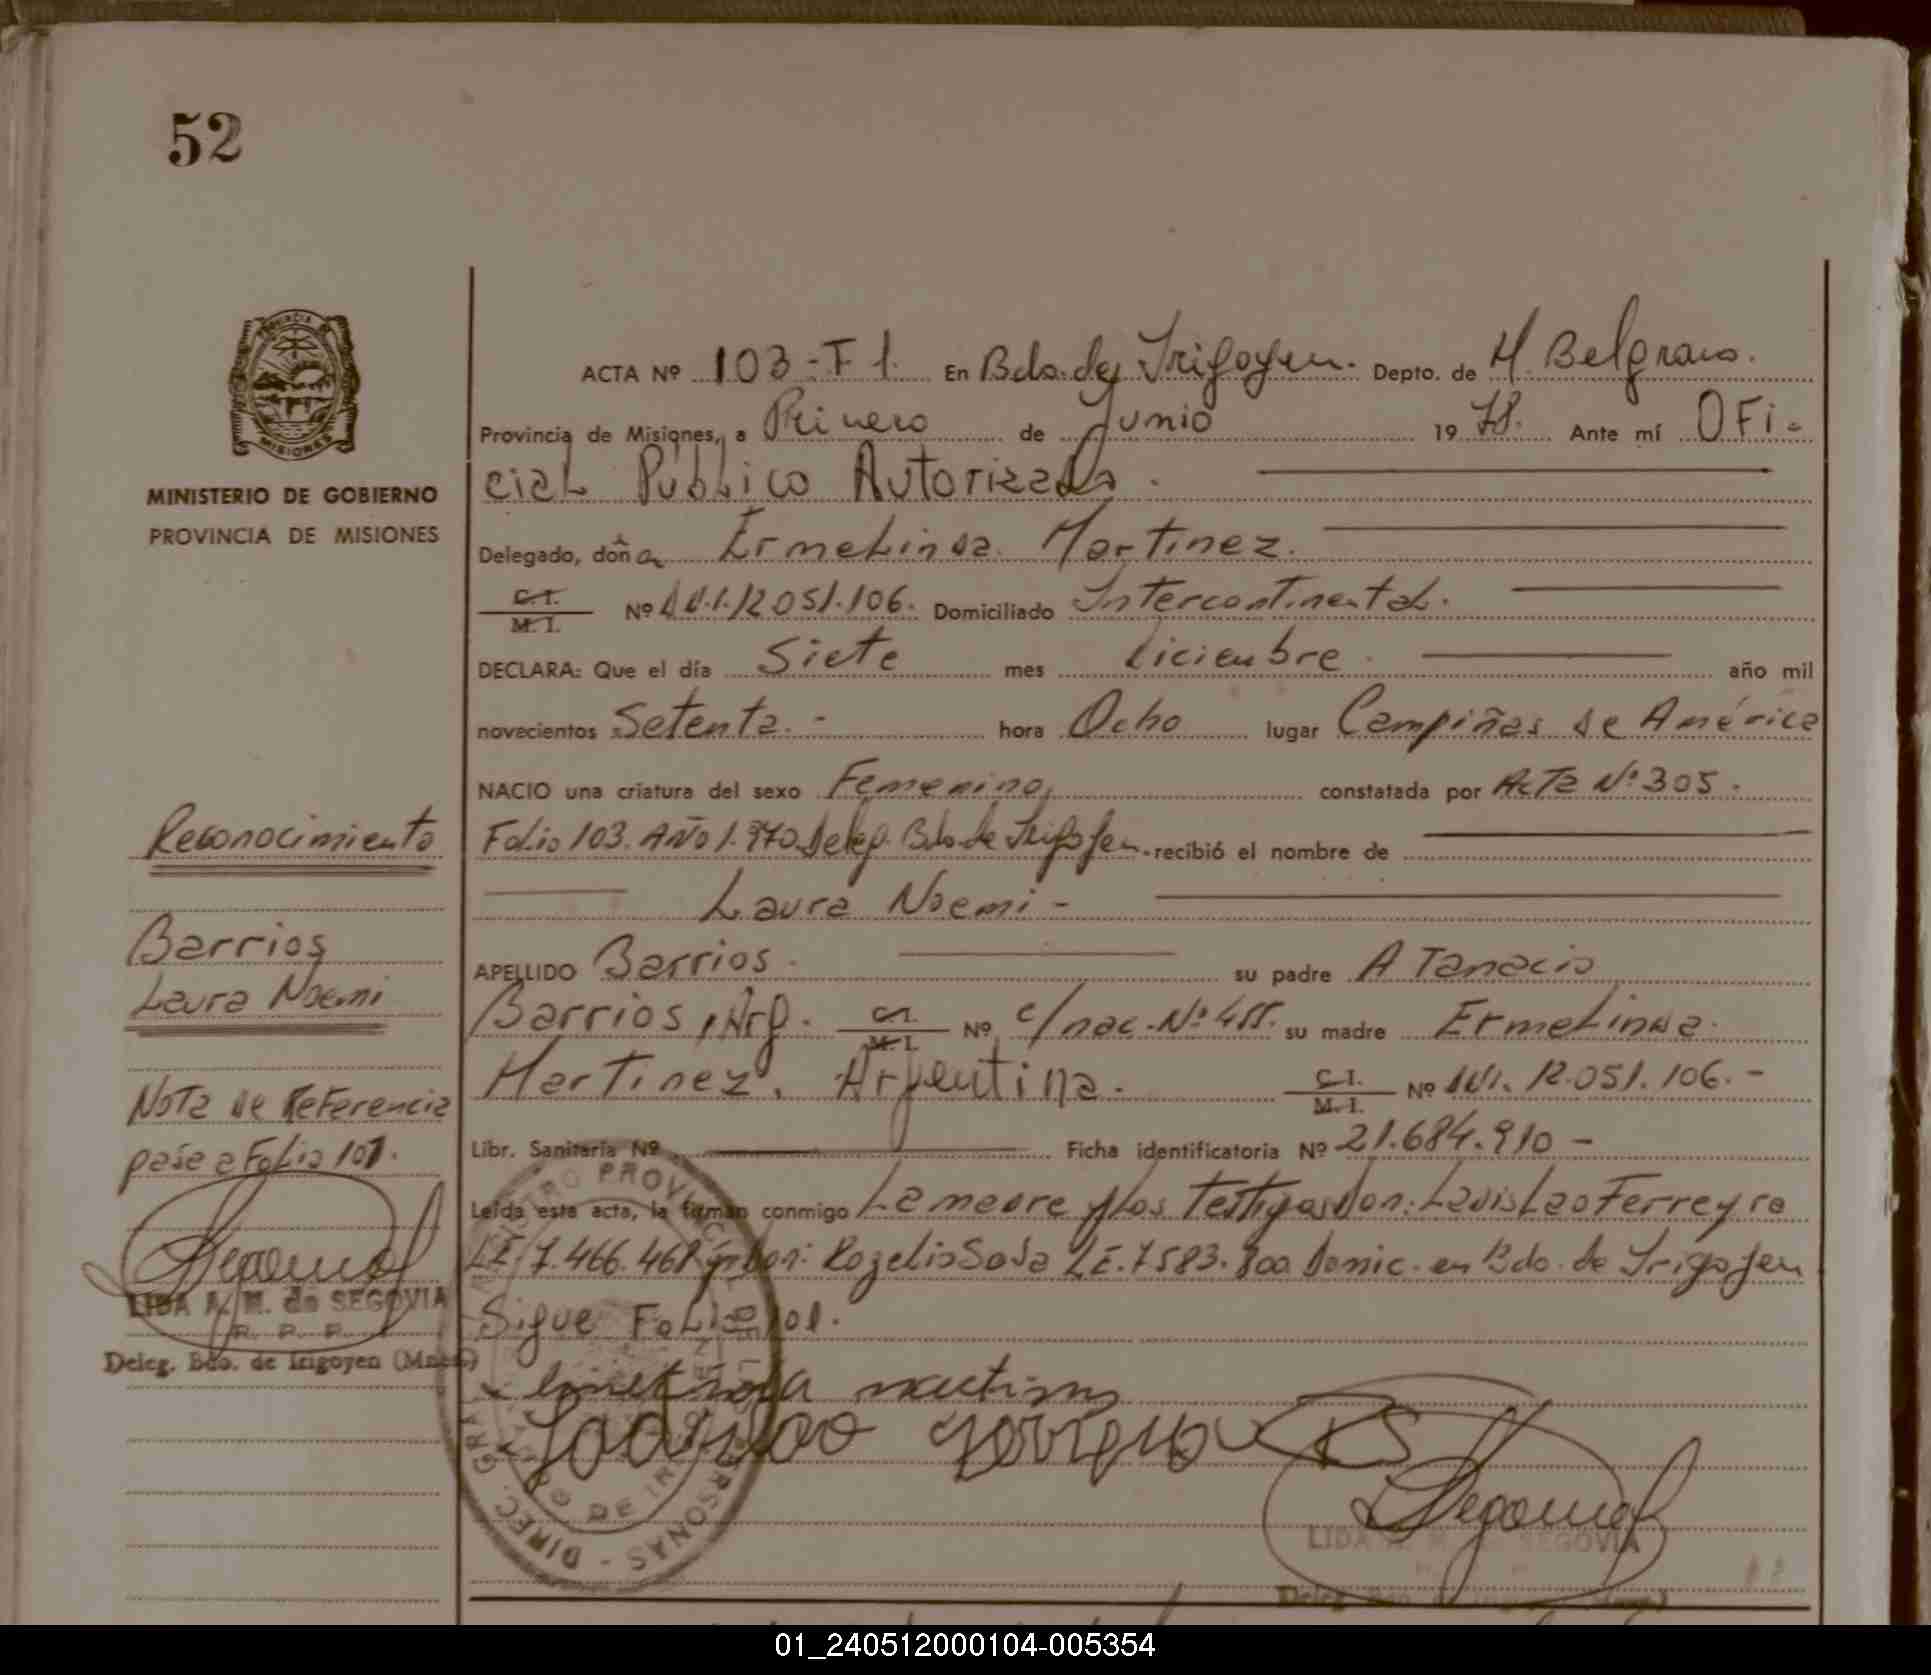 52
PROVINCIA DE
MISIONES
MINISTERIO DE GOBIERNO
PROVINCIA DE MISIONES
ACTA Nº 103-F1. En Bdo. de Irigoyen. Depto. de M. Belgrano.
Provincia de Misiones, a Primero de Junio 1978. Ante mí OFi-
cial Público Autorizado.
Delegado, doña Ermelinda Martinez.
C.I. M.I. Nº 12.051.106. Domiciliado Intercontinental.
DECLARA: Que el día Siete mes diciembre. año mil
novecientos Setenta.- hora Ocho lugar Campiñas de América
NACIO una criatura del sexo Femenino, constatada por Acta Nº 305.
Folio 103. Año 1.970. Deleg. Bdo de Irigoyen. recibió el nombre de
Laura Noemi-
APELLIDO Barrios. su padre ATanacio
Barrios, Arg. C.I. M.I. Nº c/nac. Nº 455. su madre Ermelinda.
Martinez. Argentina. C.I. M.I. Nº 12.051.106.-
Libr. Sanitaria Nº Ficha identificatoria Nº 21.684.910-
Leída esta acta, la firman conmigo La madre y los Testigos Don: Ladislao Ferreyra
LE 7.466.468 y Don: Rogelio Sosa LE. 7583.800 Domic. en Bdo. de Irigoyen
Sigue Folio 101.
Reconocimiento
Barrios
Laura Noemi
Nota de Referencia
pase a Folio 101.
LIDA A. M. de SEGOVIA
R. P. P.
Deleg. Bdo. de Irigoyen (Mnes.)
Ladislao Ferreyra RS
LIDA A. M. de SEGOVIA
DIREC. GRAL. REGISTRO PROVINCIAL DE LAS PERSONAS
01_240512000104-005354